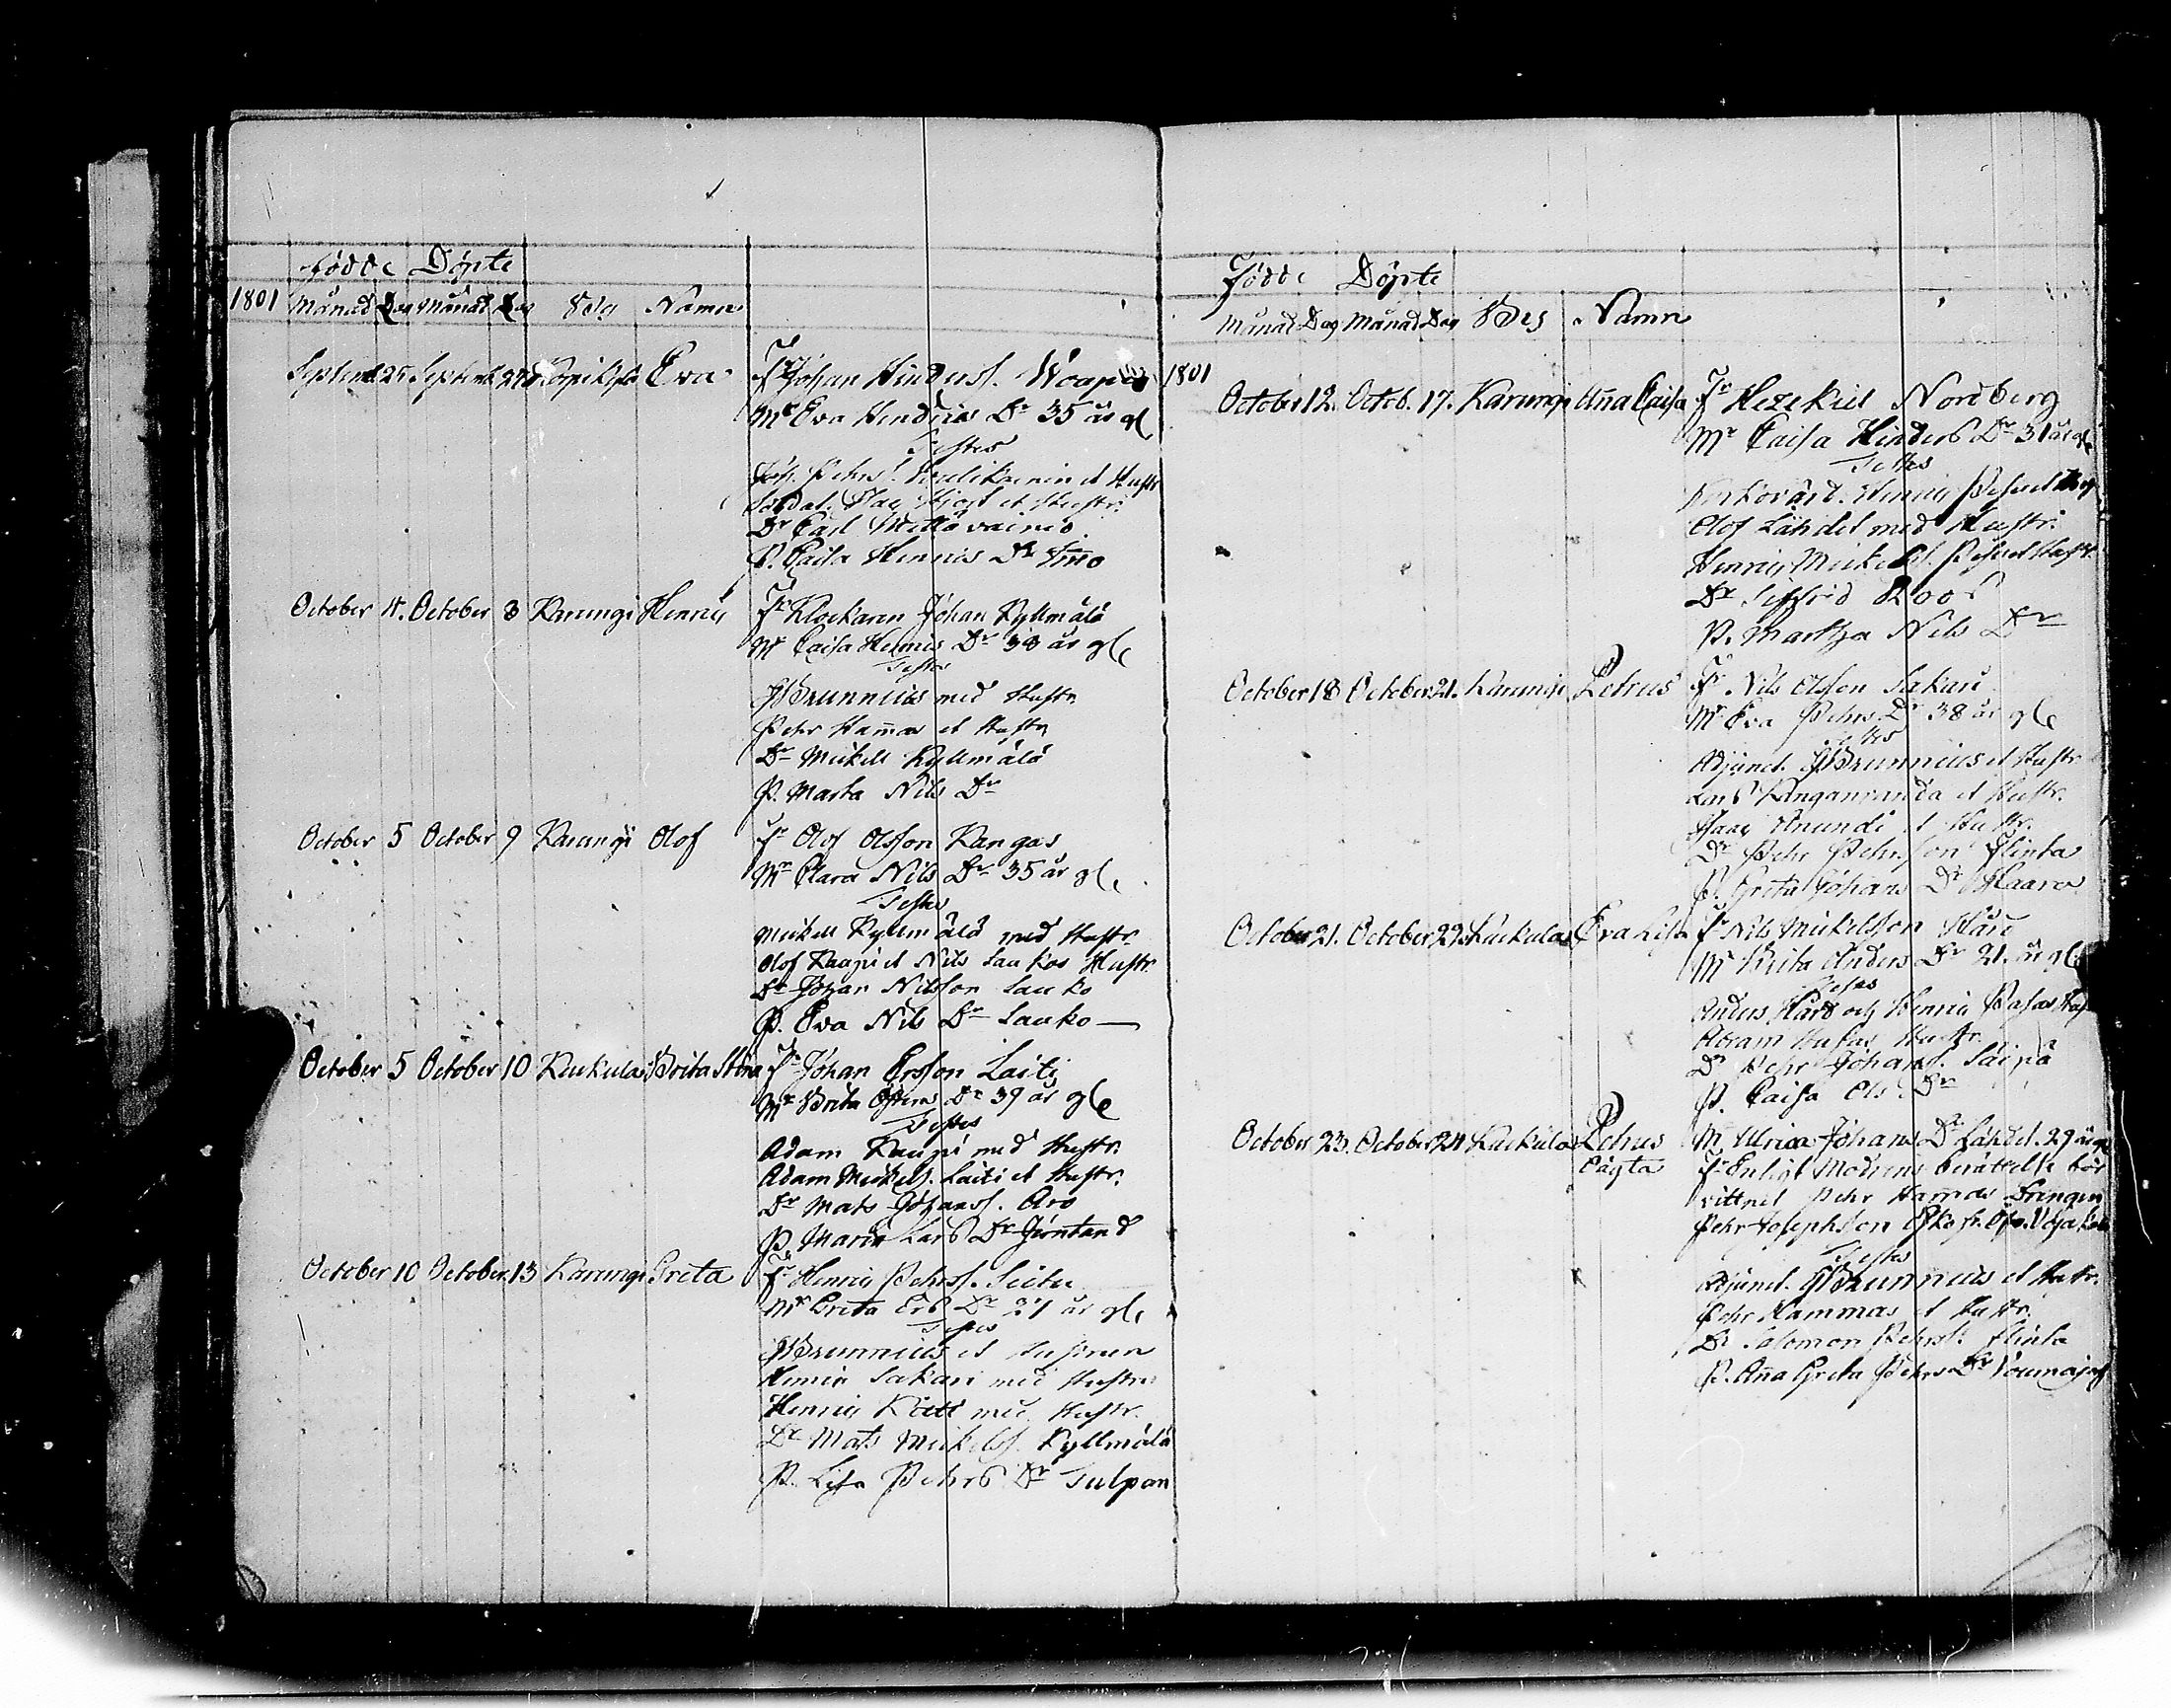 Födde Döpte
1801 Månad Dag Månad Dag Namn
Septemb. 25 Septemb. 27 Eva Fr Johan Hinderss.
Mr Eva Hendrics Dr 35 år gl
Testes
Joh. Pehrs. et Hustr
Soldat. et Hustr.
Dr Carl
P. Caisa Hennis Dr
October 4. October 8 Karungi Henric Fr Klockaren Johan Kyllmälä
Mr Caisa Hennis Dr 38 år gl
Testes
Brunnius med Hustr.
Pehr Hammas et Hustr
Dr Mickell Kyllmälä
P. Marta Nils Dr
October 5 October 9 Karungi Olof Fr Olof Olsson Kangas
Mr Clara Nils Dr 35 år gl.
Testes
Mickell Kyllmälä med Hustr.
Olof Kaupi et Nils Laukos Hustr.
Dr Johan Nilsson Lauko
P. Eva Nils Dr Lauko
October 5 October 10 Kuckula Brita Stina Fr Johan Ersson Laiti
Mr Brita Dr 39 år gl
Testes
Adam Kaupi med Hustr.
Adam Mickelss. Laiti et Hustr.
Dr Mats Johanss. Aro
P. Maria Lars Dr
October 10 October 13 Karungi Greta Fr Henric Pehrss.
Mr Greta Ers Dr 27 år gl.
Testes
Brunnius et Hustrun
Henric Sakari med Hustru
Henric med Hustr.
Dr Mats Mickelss. Kyllmälä
P. Lisa Pehrs Dr Tulpan
Födde Döpte
Månad Dag Månad Dag Namn
1801
October 12. Octob. 17. Karungi Anna Caisa Fr Hezekiel Nordberg
Mr Caisa Hinders Dr 31 år gl
Testes
Henric
Olof Lähdet med Hustr.
Henric Mickelss.
Dr Sigfrid Roos
P. Martha Nils Dr
October 18 October 21. Karungi Petrus Fr Nils Olsson Sakari
Mr Eva Pehrs Dr 38 år gl
Testes
Adjunct. Brunnius et Hustr.
Lars Kanganranda et Hustr.
Isaac Anundi et Hustr.
Dr Pehr Pehrsson Flinta
P. Greta Johans Dr Haara
October 21. October 22. Kuckula Eva Lisa Fr Nils Mickelsson Hård
Mr Brita Anders Dr 21. år gl
Testes
Anders Hård och Henric
Abram Hustr.
Dr Pehr Johans.
P. Caisa Ols Dr
October 23. October 24 Kuckula Petrus Mr Ulrica Johans Dr Lähdet. 29 år gl
oägta Fr Enligt Modrens berättelse
Pehr Hammas Drengen
Pehr Josephson
Testes
Adjunct. Brunnius et Hustr.
Pehr Hammas et Hustr.
Dr Salomon Pehrss. Flinta
P. Anna Greta Pehrs Dr